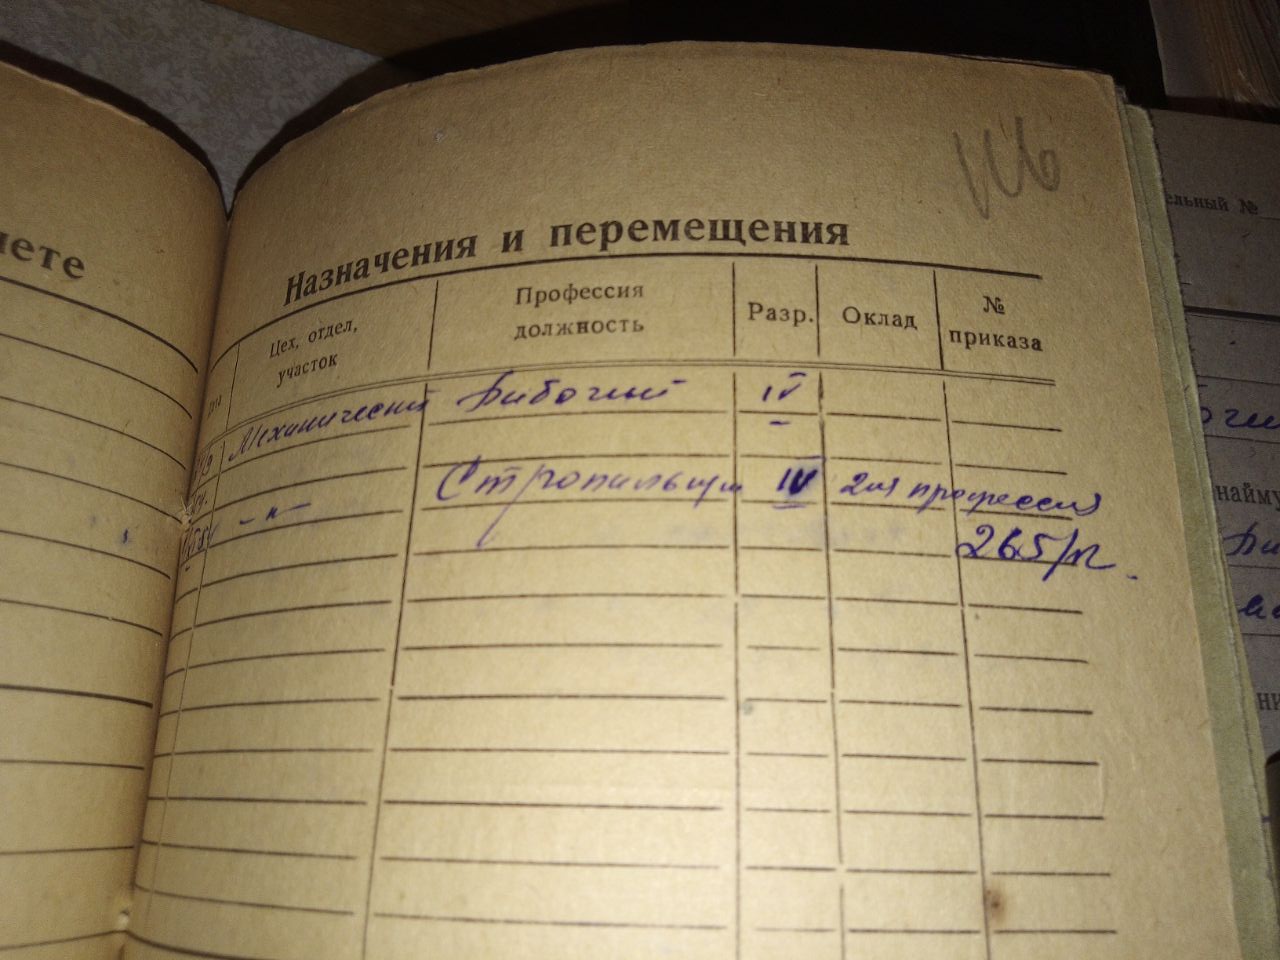 нете
Назначения и перемещения
Цех, отдел, участок
Профессия должность
Разр.
Оклад
№ приказа
Механический Рабочий IV
Стропальщик IV 2ая профессия
-"-
265/к
ельный №
найму